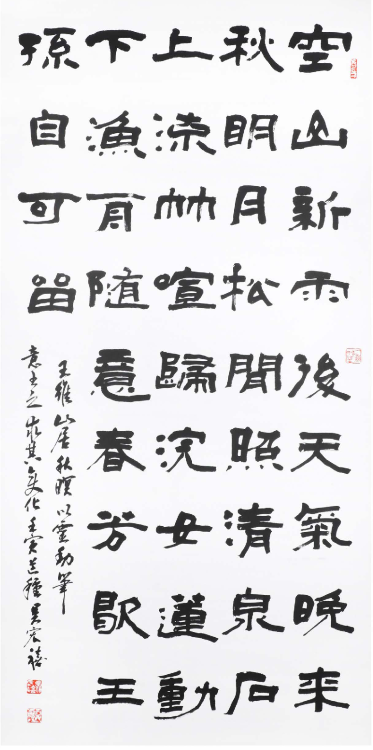 空山新雨後天氣晚来
秋明月松間照清泉石
上流竹喧歸浣女蓮動
下漁舟随意春芳歇王
孫自可留
王維山居秋暝以靈動筆
意書之求其變化壬寅芒種